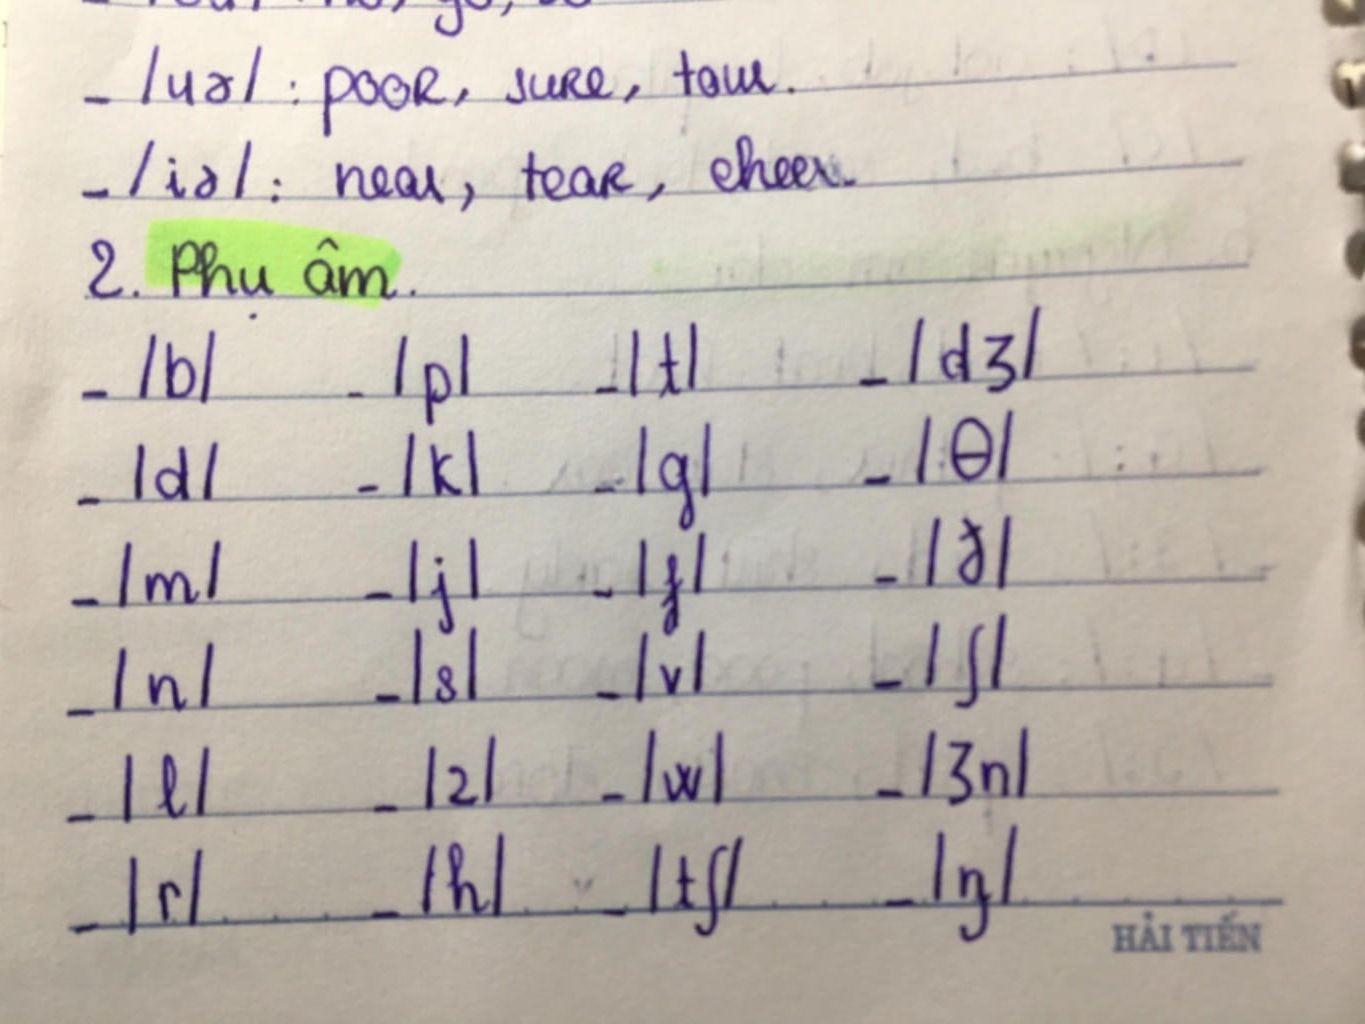 - /uə/ : poor, sure, tour.
- /iə/ : near, tear, cheer.
2. Phụ âm.
- /b/ - /p/ - /t/ - /dʒ/
- /d/ - /k/ - /g/ - /θ/
- /m/ - /j/ - /f/ - /ð/
- /n/ - /s/ - /v/ - /ʃ/
- /l/ - /z/ - /w/ - /ʒn/
- /r/ - /h/ - /tʃ/ - /ŋ/
HẢI TIẾN